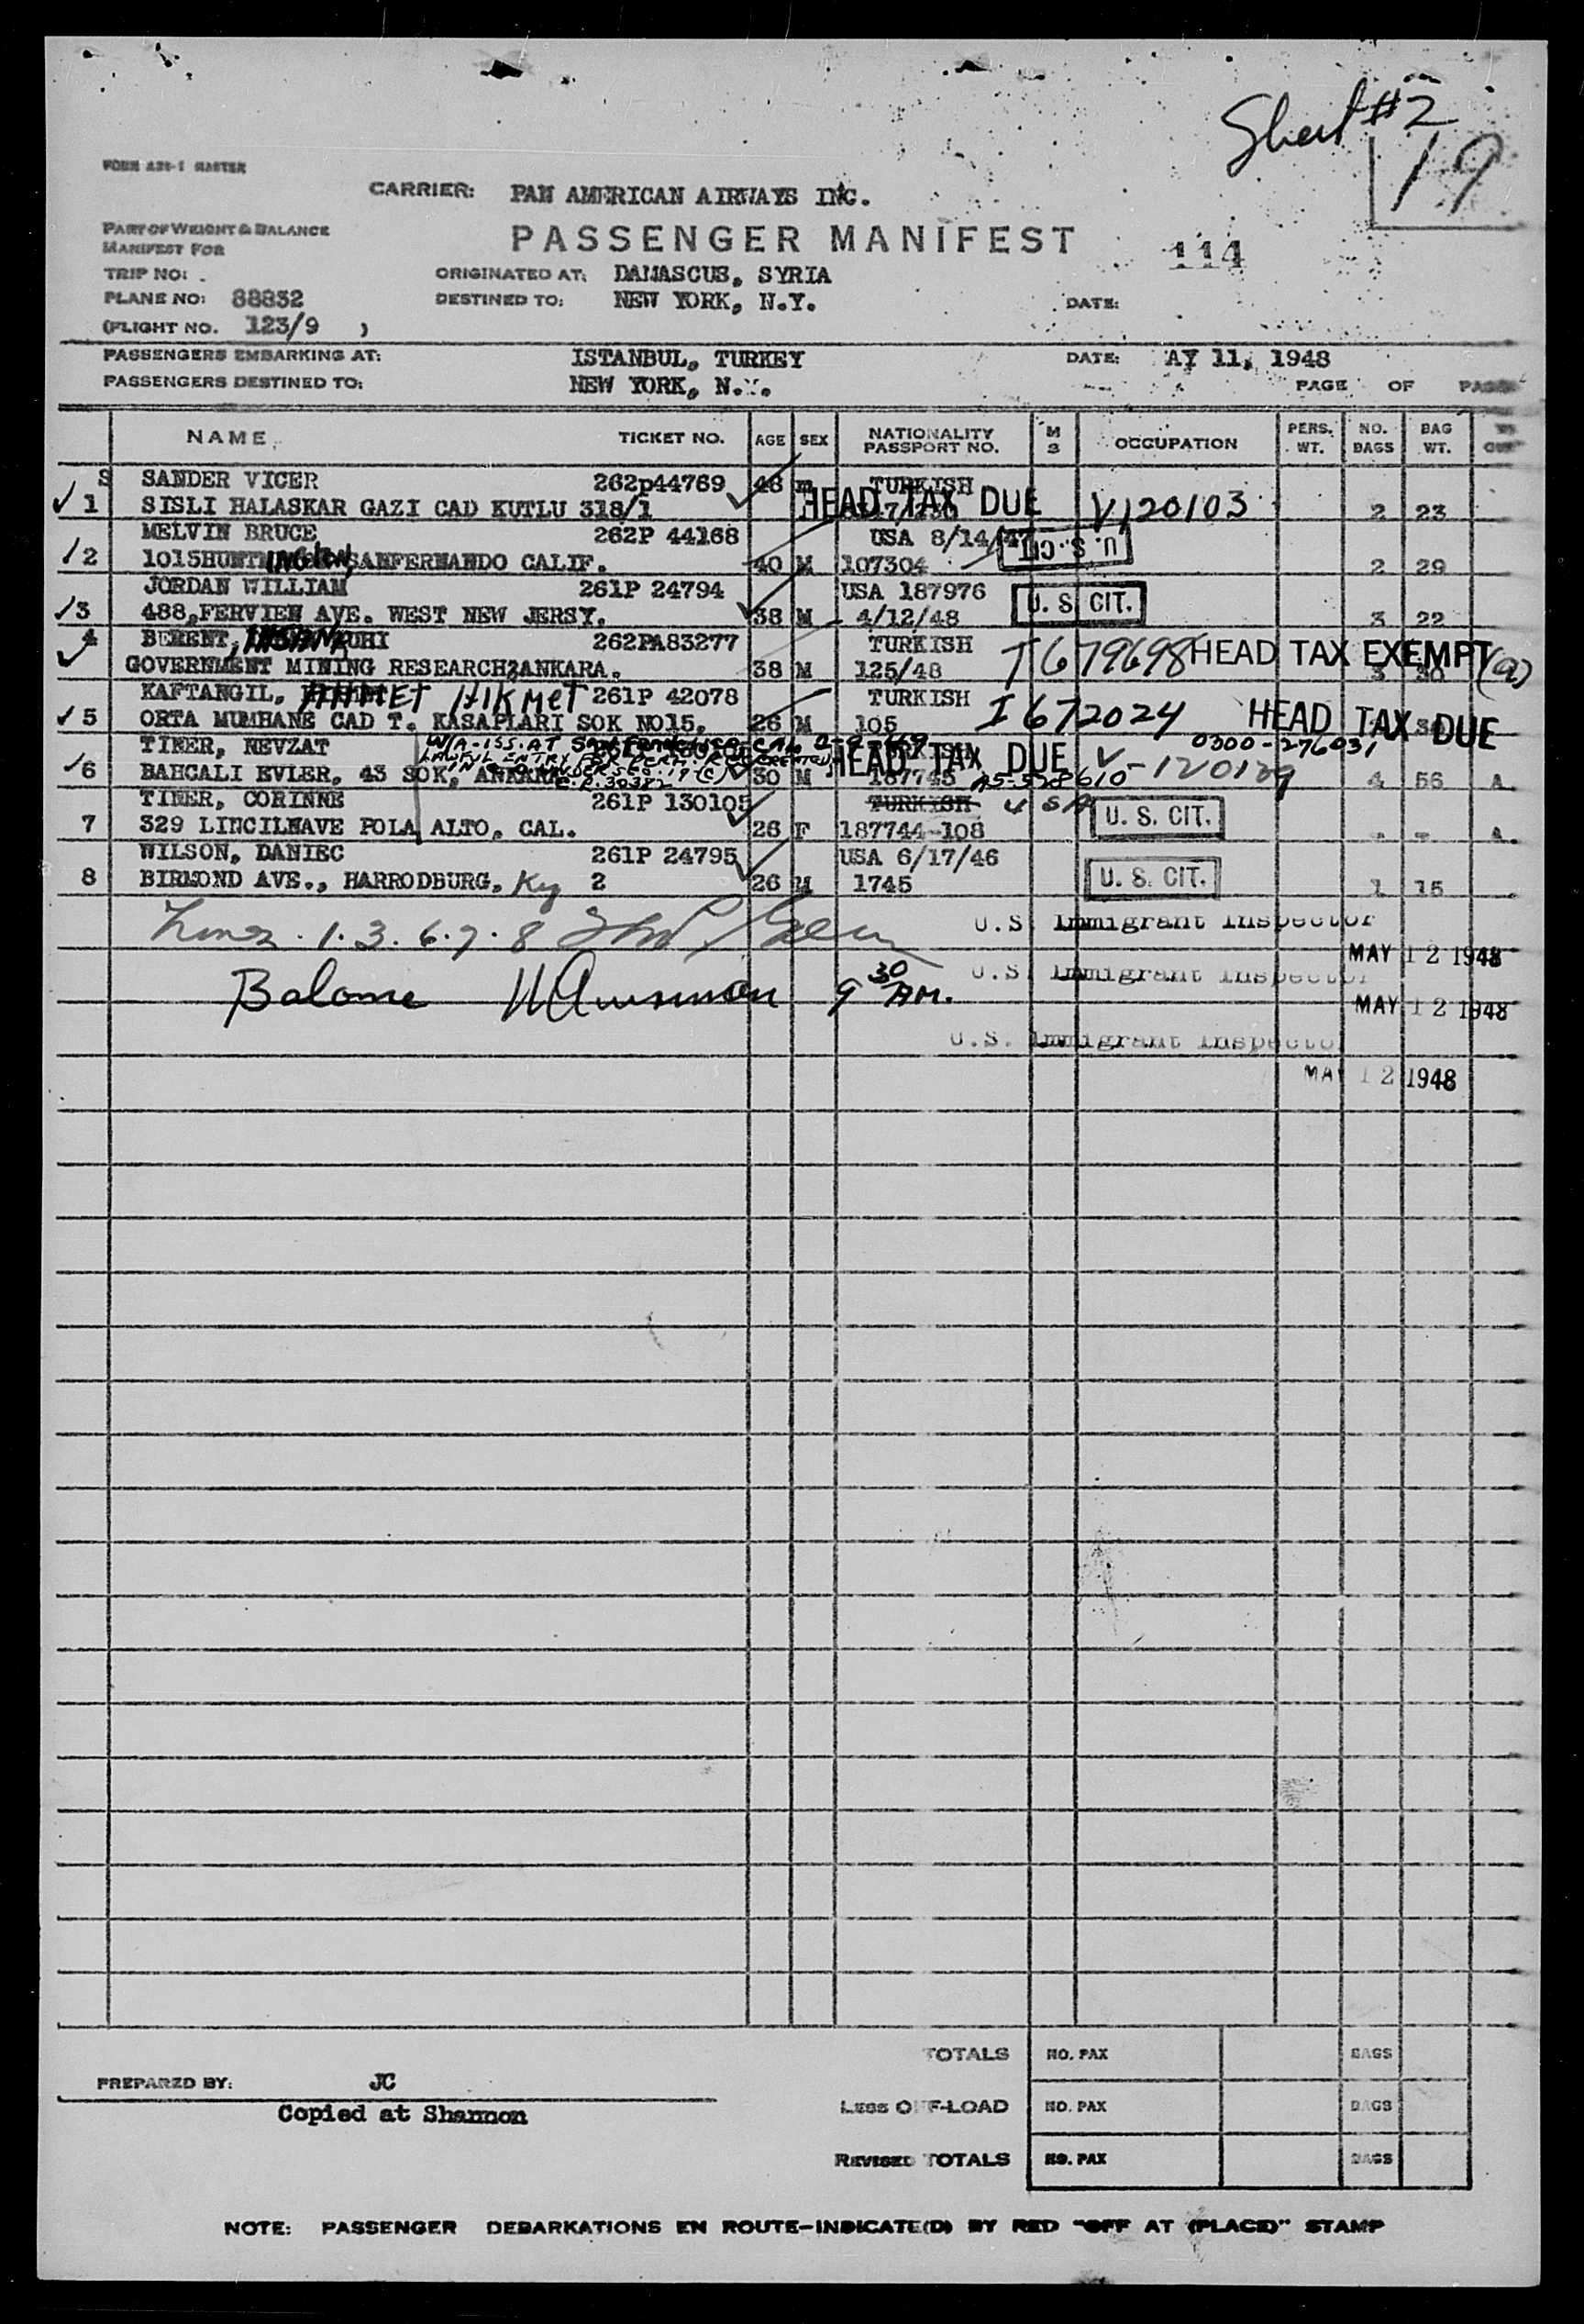 Sheet #2
19
FORM A26-1 MASTER
CARRIER: PAN AMERICAN AIRWAYS INC.
PART OF WEIGHT & BALANCE
MANIFEST FOR
PASSENGER MANIFEST 114
TRIP NO: ORIGINATED AT: DAMASCUS, SYRIA
PLANE NO: 88832 DESTINED TO: NEW YORK, N.Y. DATE:
(FLIGHT NO. 123/9 )
PASSENGERS EMBARKING AT: ISTANBUL, TURKEY DATE: AY 11, 1948
PASSENGERS DESTINED TO: NEW YORK, N.Y. PAGE OF PAGES
NAME TICKET NO. AGE SEX NATIONALITY PASSPORT NO. M S OCCUPATION PERS. WT. NO. BAGS BAG WT.
S SANDER VICER 262p44769 48 m TURKISH
1 SISLI HALASKAR GAZI CAD KUTLU 318/1 HEAD TAX DUE V120103 2 23
MELVIN BRUCE 262P 44168 USA 8/14/47 U.S. CIT.
2 1015HUNTINGTON, SANFERNANDO CALIF. 40 M 107304 2 29
JORDAN WILLIAM 261P 24794 USA 187976
3 488,FERVIEN AVE. WEST NEW JERSY. 38 M 4/12/48 U. S. CIT. 3 22
4 BEMENT, RUHI 262PA83277 TURKISH T 679698 HEAD TAX EXEMPT (a)
GOVERNMENT MINING RESEARCH,ANKARA. 38 M 125/48 3 30
KAFTANGIL, AHMET HIKMET 261P 42078 TURKISH I 672024 HEAD TAX DUE
5 ORTA MUMHANE CAD T. KASAPLARI SOK NO15. 26 M 105
TINER, NEVZAT HEAD TAX DUE V-120129 0300-276031
6 BAHCALI EVLER, 43 SOK, ANKARA 30 M 187745 A5-528610 4 56 A.
TINER, CORINNE 261P 130105 TURKISH USA
7 329 LINCILNAVE POLA ALTO, CAL. 26 F 187744-108 U. S. CIT. A.
WILSON, DANIEC 261P 24795 USA 6/17/46
8 BIRMOND AVE., HARRODBURG, Ky 2 26 M 1745 U. S. CIT. 1 15
1. 3. 6. 7. 8 U.S. Immigrant Inspector
MAY 12 1948
9 30 AM. U.S. Immigrant Inspector
MAY 12 1948
U.S. Immigrant Inspector
MAY 12 1948
TOTALS NO. PAX BAGS
PREPARED BY: JC
Copied at Shannon
LESS OFF-LOAD NO. PAX BAGS
REVISED TOTALS NO. PAX BAGS
NOTE: PASSENGER DEBARKATIONS EN ROUTE-INDICATE(D) BY RED "OFF AT (PLACE)" STAMP